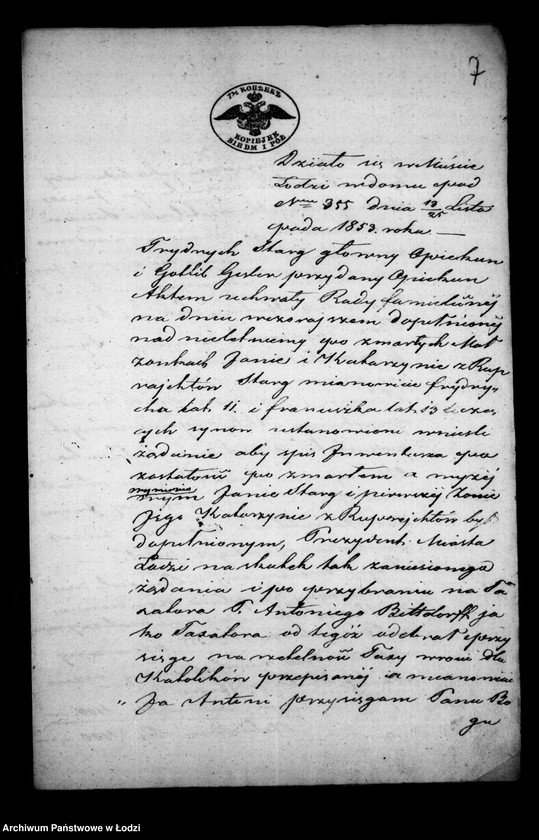 7
7½ КОПѢЕКЪ
KOPIEJEK
SIEDM I PÓŁ
Działo się w Mieście
Łodzi w domu pod
Nrem 355 dnia 13/25 Listo
pada 1853. roku. —
Frydrych Starg główny Opiekun
i Gottlib Gesler przydany Opiekun
Aktem uchwały Rady familijnéj
na dniu wczorajszem dopełnionéj
nad nieletniemi po zmarłych Mał
żonkach Janie i Katarzynie z Rup
rajchtów Starg mianowicie frydry
cha lat 11. i franciszka lat 13 liczą
cych synów ustanowieni wnieśli
żądanie aby spis Inwentarza po
zostałości po zmarłem a wyżéj
wymienio
nym Janie Starg i pierwszéj żonie
Jego Katarzynie z Ruprajchtów był
dopełnionym, Prezydent Miasta
Łodzi na skutek tak zaniesionego
żądania i po przybraniu na Ta
xatora P. Antoniego Bittdorff ja
ko Taxatora od tegoż odebrał przy
sięgę na rzetelność Taxy wrocie dla
Katolików przepisanéj a mianowicie
„ Ja Antoni przysięgam Panu Bo
gu
Archiwum Państwowe w Łodzi